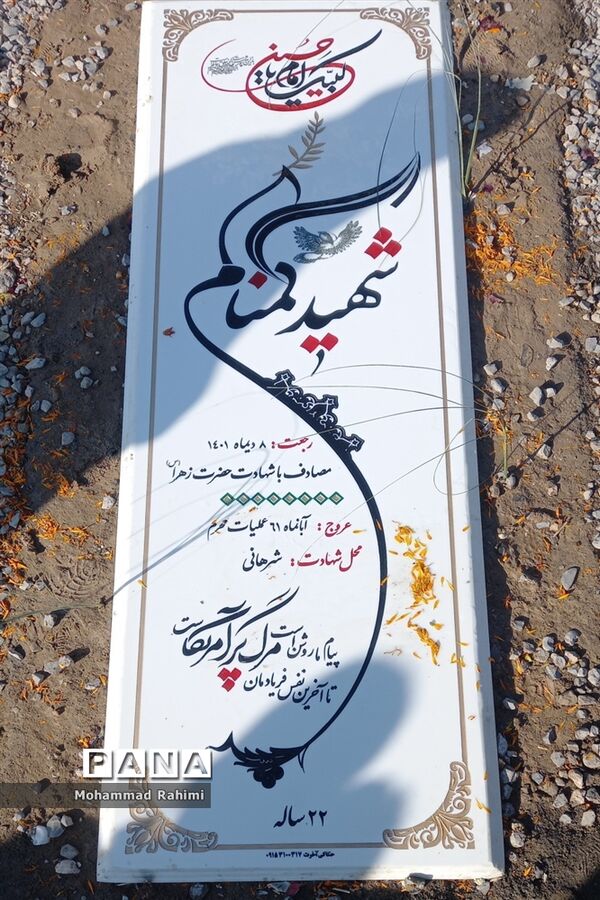 لبیک یا امام حسین
شهید گمنام
رجعت: ۸ دیماه ۱۴۰۱
مصادف با شهادت حضرت زهرا(س)
عروج: آبانماه ۶۱ عملیات محرم
محل شهادت: شرهانی
پیام ما روشن است مرگ بر آمریکاست
تا آخرین نفس فریادمان
۲۲ ساله
حکاکی آخرت ۰۹۱۵۳۱۰۰۳۱۷
PANA
Mohammad Rahimi